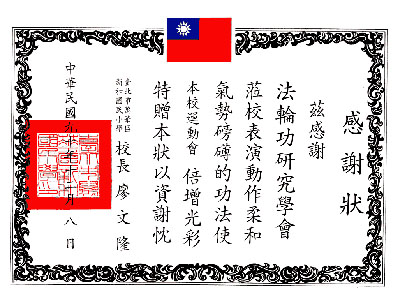 感謝狀
茲感謝
法輪功研究學會
蒞校表演動作柔和
氣勢磅礡的功法使
本校運動會 倍增光彩
特贈本狀以資謝忱
臺北市萬華區
新和國民小學
校長 廖文隆
中華民國 月八日